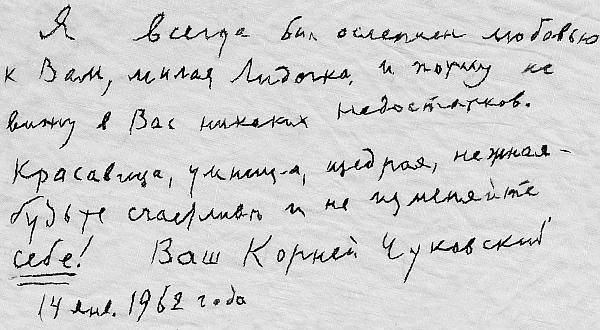 Я всегда был ослеплен любовью
к Вам, милая Лидочка, и потому не
вижу в Вас никаких недостатков.
Красавица, умница, щедрая, нежная -
будьте счастливы и не изменяйте
себе! Ваш Корней Чуковский
14 янв. 1962 года